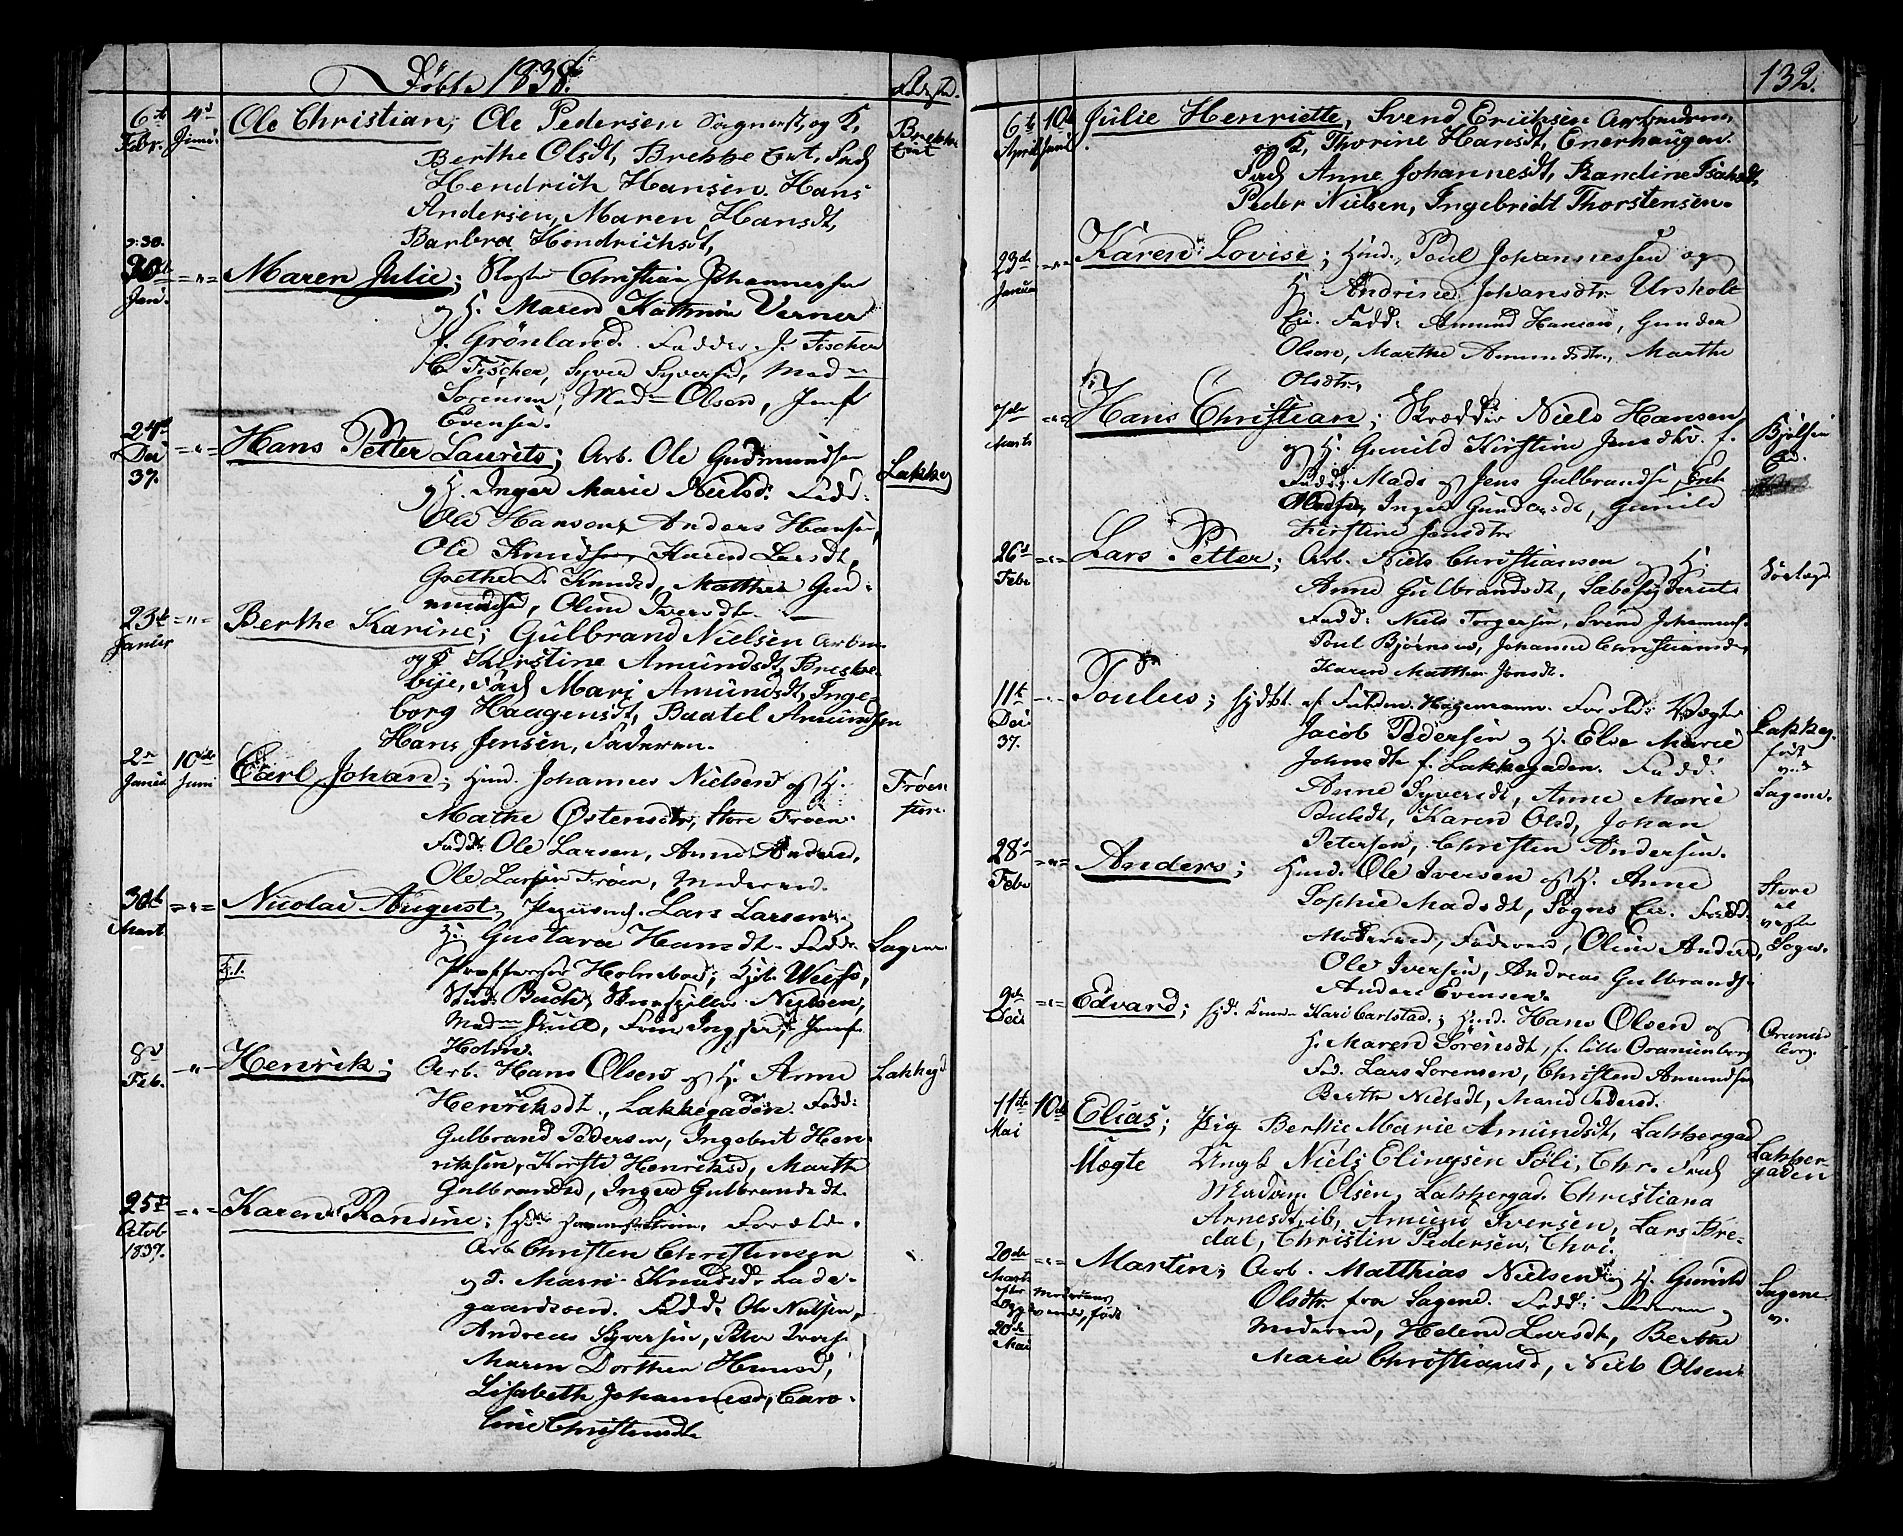 Døbte 1838.
6te Febr. 4de Juni. Ole Christian; Ole Pedersen Sagmest. og K.
Berthe Olsdt, Brekke Eit, Fad
Hendrich Hansen. Hans
Andersen, Maren Hansdt,
Barbra Hendrichsdt,
Brekke Eit
Jan. Maren Julie; Christian Johannessen
og H. Maren Kathrine Verner
f. Grönland. Fadder. J. Fischer
C. Fischer, Syver Syvers, Mad
Sørensen, Mad Olsen, Jomf
Evensen.
24de Dec 37. Hans Petter Laurits; Arb. Ole Gudmundsen
og H. Inger Marie Nielsd: Fadd:
Ole Hansen, Anders Hansen,
Ole Knudsen, Karen Larsdt,
Knudsd, Mathea Gud-
mundsd, Oline Iversdt
Lakkeg
23de Januar Berthe Karine; Gulbrand Nielsen Arbm.
og K Kirstine Amundsdt, Breske-
bye, Fad Mari Amundsdt, Inge-
borg Haagensdt, Baatel Amundsen
Hans Jensen, Faderen.
2n Januar 10de Juni Carl Johan; Huusm. Johannes Nielsen og H.
Mathe Østensdtr, Store Frøen
Fadd: Ole Larsen, Anne Andersd,
Ole Larsen Frøen, Moderen.
Frøen
30te Mart Nicolai August, Lars Larsen
H. Gustava Hansdt. Fadd:
Proffessor Holmboe; Weiss,
Stud. Buch, Nielsen,
Mad Juell, Frøk Jomf
Holm.
Sagene
F. 1.
8de Feb. Henrik; Arb. Hans Olsen og H. Anne
Henriksdt., Lakkegaden. Fadd:
Gulbrand Pedersen, Ingebret Hen-
riksen, Henriksd, Marthe
Gulbrandsd, Inger Gulbrandsdt.
Lakkegd
25de Octob 1837. Karen Randine; Forælde.
Arb Christen Christensen
og H. Marie Knudsdt Lade-
gaardsøen. Fadd: Ole Nielsen,
Andreas Syversen, Peter Iversen
Maren Dorthea Hansd,
Lisabeth Johannesd, Caro-
line Christensdt
132.
6te April 10de Juni Julie Henriette, Svend Eriksen Arbmdm,
og K, Thorine Hansdt, Enerhaugen.
Fad Anne Johannesdt, Randine Isaksdt,
Peder Nielsen, Ingebridt Thorstensen.
23de Januar Karen Lovise; Huusm. Poul Johannessen og
H. Andrine Johansdtr Ursholt
Ei. Fadd: Amund Hansen, Gunder
Olsen, Marthe Amundsdtr, Marthe
Olsdtr.
7de Marts Hans Christian; Skrædder Niels Hansen
og H. Gunild Kirstine Jensdtr. f.
Fadd: Mads og Jens Gulbrandsen, Erik
Olsen, Inger Gundersdt, Gunild
Kirstine Jensdtr
Bjølsen
26de Febr Lars Petter; Arb. Niels Christiansen og H.
Anne Gulbrandsdt, Sæbesyderiet
Fadd: Niels Torgersen, Svend Johannes.
Poul Bjørnsen, Johanne Christiansd,
Karen Mathea Jensdt.
11te Dec 37. Poulus; Hjdbt af Hagemann. Foræld: Vægter
Jacob Pedersen og H. Else Marie
Johnsdt f. Lakkegaden. Fadd:
Anne Syversdt, Anne Marie
Pulsdt, Karen Olsd, Johan
Petersen, Christen Andersen.
Lakkeg. født ved Sagene.
28de Febr Anders; Huusm. Ole Iversen og H. Anne
Sophie Madsdt, Sogns Ei. Fadd:
Moderen, Faderen, Oline Andersd,
Ole Iversen, Andreas Gulbrands.
Anders Evensen.
Store
vestre
Sogn.
9de Dec Edvard; Hjd. Kari Carlstad; Huusm. Hans Olsen og
H. Maren Sørensdt, f. lille Oranienborg
Fad. Lars Sørensen, Christen Amundsen
Berthe Nielsdt, Maren Pedersd.
Oranienborg.
11te Mai 10de Elias; Pig Berthe Marie Amundsdt, Lakkergad
Uægte Ungk Niels Elingsen Søli, Chr. Fad
Madam Olsen, Lakkergad. Christiana
Arnesdt, ib, Amund Iversen, Lars Bre-
dal, Christin Pedersen, Chri.
Lakker-
gaden
20de Marts Martin; Arb. Matthias Nielsen og H. Gunild
Olsdtr fra Sagene. Fadd: Faderen og
Moderen, Helene Larsdt, Berthe
Marie Christiansd, Niels Olsen
efter Moderens Opgivende, født 20de Mai
Sagene